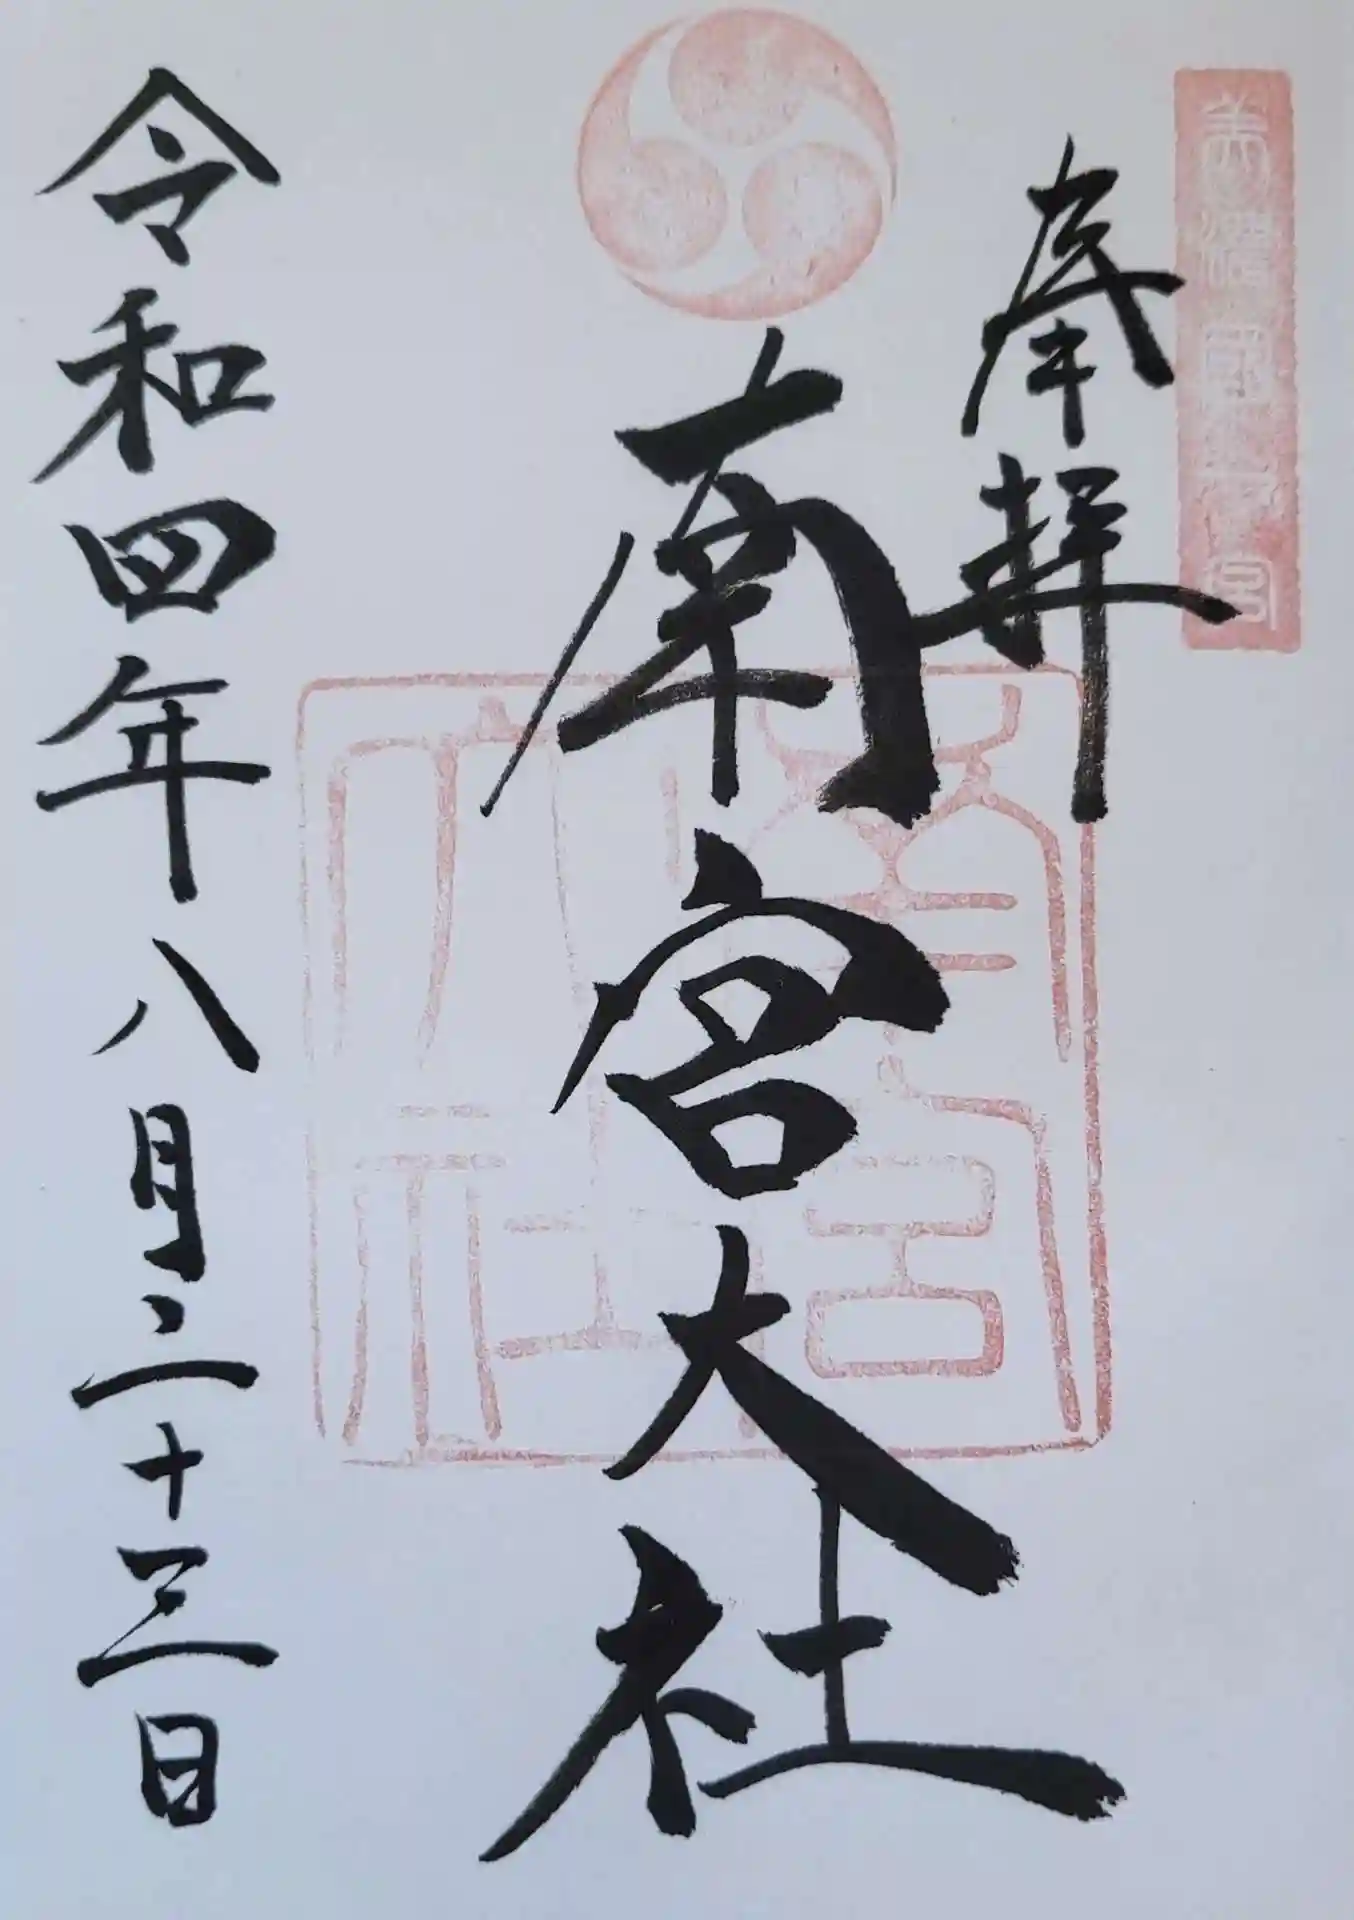 美濃國一宮
奉拝
南宮大社
南宮大社
令和四年八月二十三日